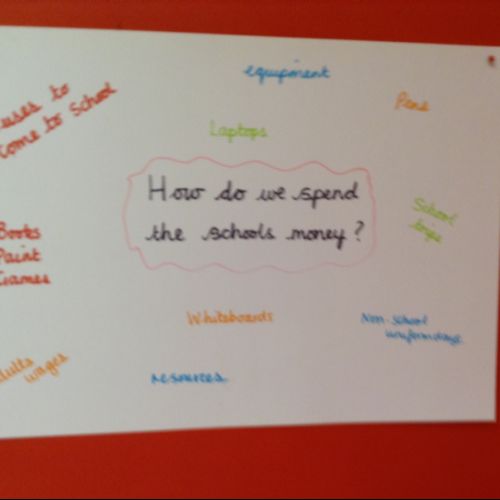 equipment
Pens
Laptops
uses to
come to School
How do we spend
the schools money?
School
trips
Books
Paint
Games
Whiteboards
Non-School
uniform days
adults
wages
resources